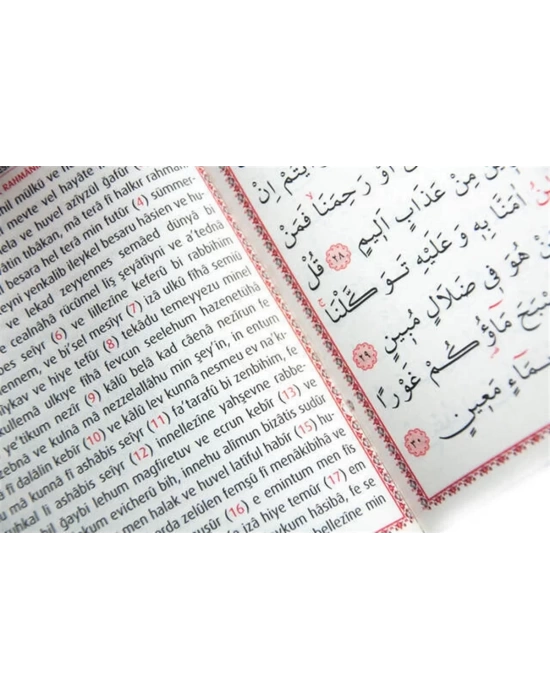 RAHMAN
mil mülkü ve
meyte vel hayate
ve huvel azîyzül ğafûr
tıbâkan, mâ terâ fî halkır rahmân
besara hel terâ min futûr (4) sümmer-
yenkalib ileykel besaru hâsien ve hu-
ve lekad zeyyennes semâed dünyâ bi
ve cealnâhâ rücûmel liş şeyâtiyni ve a'tednâ
seiyr (6) ve lillezîne keferû bi rabbihim
ennem, ve bi'sel mesîyr (7) izâ ulkû fîhâ semiû
ve hiye tefûr (8) tekâdu temeyyezu minel
kullemâ ulkıye fîhâ fevcun seelehum hazenetühâ
e'tikum nezîr (9) kâlû belâ kad câenâ nezîrun fe
zebnâ ve kulnâ mâ nezzelallâhu min şey'in, in entum
fî dalâlin kebîr (10) ve kâlû lev kunnâ nesmeu ev na'k-
mâ kunnâ fî ashâbis seiyr (11) fa'tarafû bi zenbihim, fe
uhkal li ashâbis seiyr (12) innellezîne yahşevne rabbe-
bil ğaybi lehum mağfiretuv ve ecrun kebîr (13) ve
kum evicherû bih, innehu alîmun bizâtis sudûr
men halak ve huvel latîful habîr (15) hu-
arda zelûlen femşû fî menâkibihâ ve
nuşûr (16) e emintum men fis
izâ hiye temûr (17) em
aykum hâsibâ, fe se
bellezîne min
اِنْ
اَوْ رَحِمَنَا فَمَنْ
مِنْ عَذَابٍ اَلِيمٍ ٢٨ قُلْ
اٰمَنَّا بِهِ وَعَلَيْهِ تَوَكَّلْنَا
هُوَ فِى ضَلَالٍ مُبِينٍ ٢٩
مَٓاؤُ۬كُمْ غَوْرًا
مَعِينٍ ٣٠